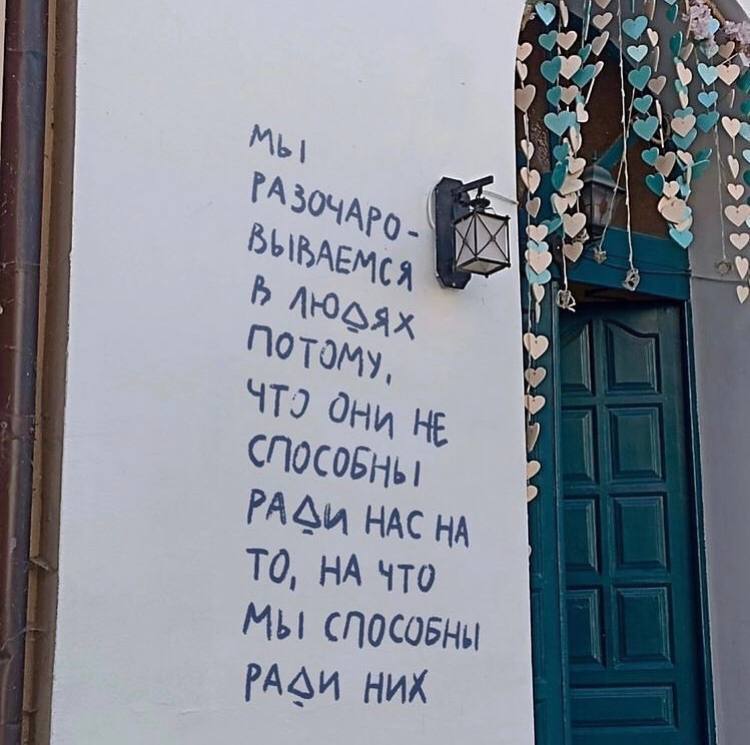 МЫ
РАЗОЧАРО-
ВЫВАЕМСЯ
В ЛЮДЯХ
ПОТОМУ,
ЧТО ОНИ НЕ
СПОСОБНЫ
РАДИ НАС НА
ТО, НА ЧТО
МЫ СПОСОБНЫ
РАДИ НИХ